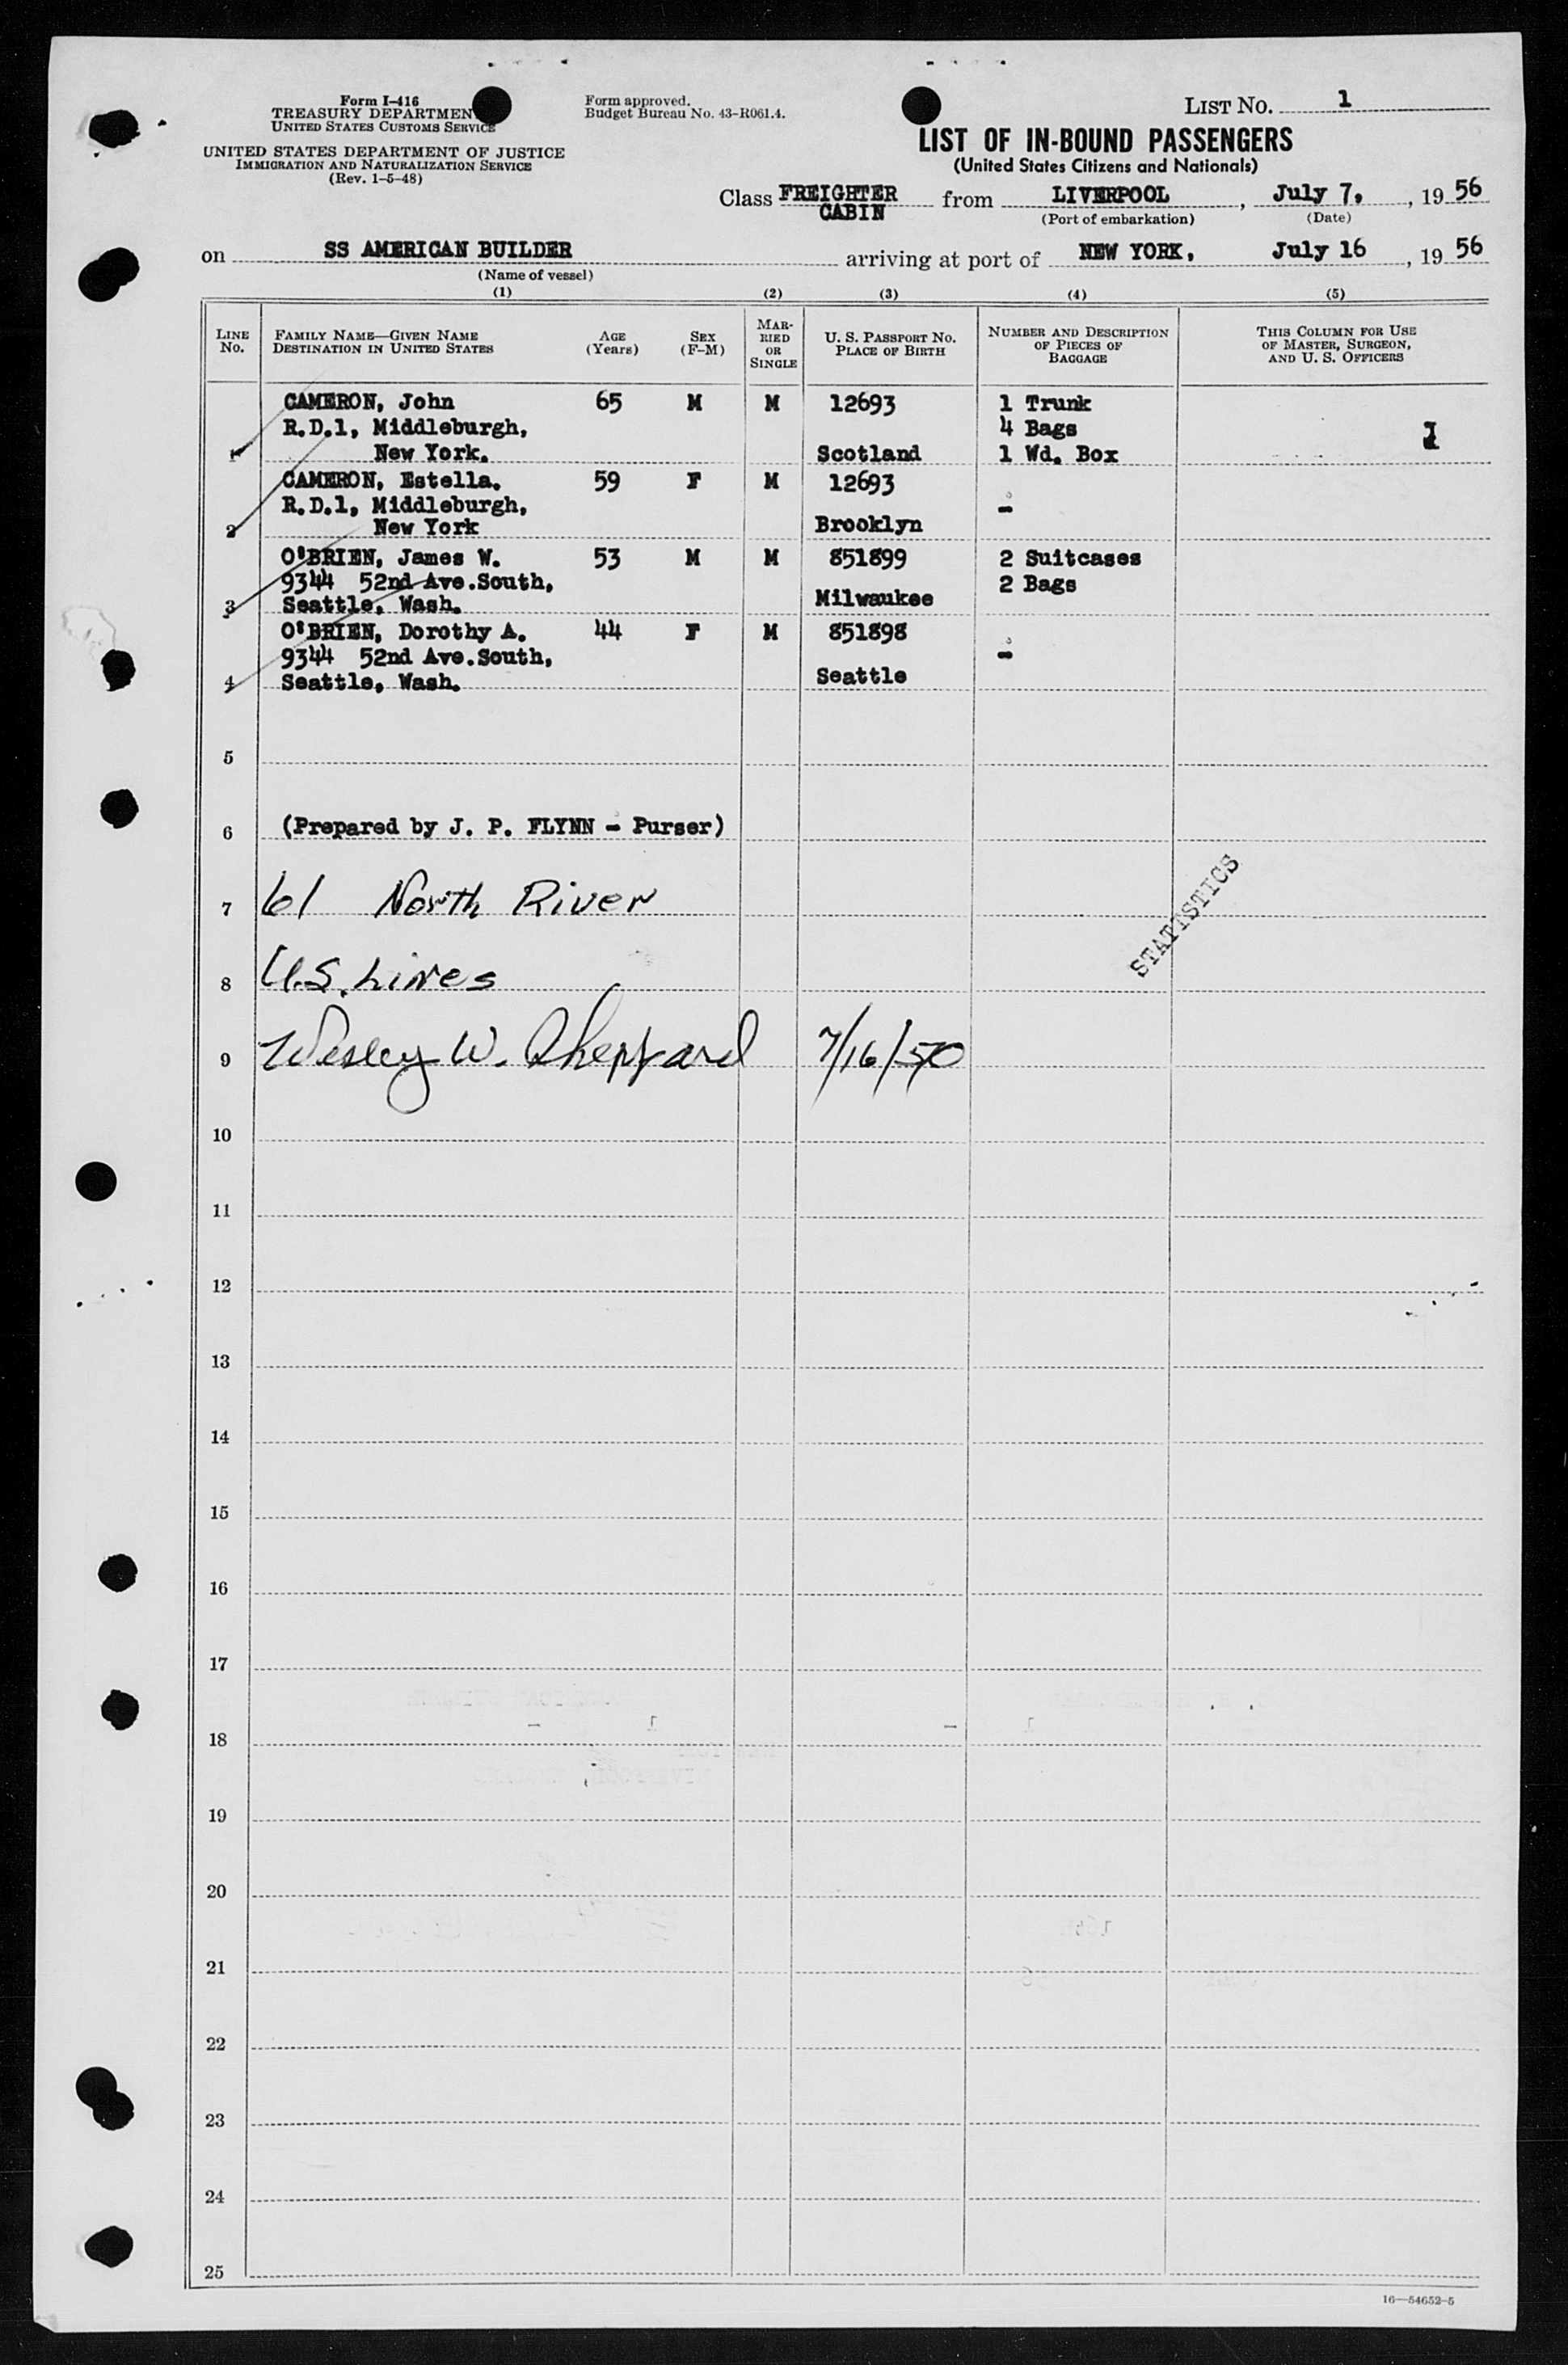 Form I-416
TREASURY DEPARTMEN
UNITED STATES CUSTOMS SERVICE
UNITED STATES DEPARTMENT OF JUSTICE
IMMIGRATION AND NATURALIZATION SERVICE
(Rev. 1-5-48)
Form approved.
Budget Bureau No. 43-R061.4.
LIST No. 1
LIST OF IN-BOUND PASSENGERS
(United States Citizens and Nationals)
Class FREIGHTER CABIN from LIVERPOOL, July 7, , 19 56
(Port of embarkation) (Date)
on SS AMERICAN BUILDER arriving at port of NEW YORK, July 16, 19 56
(Name of vessel)
(1) (2) (3) (4) (5)
LINE No. FAMILY NAME—GIVEN NAME DESTINATION IN UNITED STATES AGE (Years) SEX (F-M) MARRIED OR SINGLE U. S. PASSPORT NO. PLACE OF BIRTH NUMBER AND DESCRIPTION OF PIECES OF BAGGAGE THIS COLUMN FOR USE OF MASTER, SURGEON, AND U. S. OFFICERS
CAMERON, John 65 M M 12693 1 Trunk
R.D.1, Middleburgh, 4 Bags
1 New York. Scotland 1 Wd. Box
CAMERON, Estella. 59 F M 12693
R.D.1, Middleburgh, -
2 New York Brooklyn
O'BRIEN, James W. 53 M M 851899 2 Suitcases
9344 52nd Ave.South, 2 Bags
3 Seattle, Wash. Milwaukee
O'BRIEN, Dorothy A. 44 F M 851898
9344 52nd Ave.South, -
4 Seattle, Wash. Seattle
5
6 (Prepared by J. P. FLYNN - Purser)
7 61 North River
STATISTICS
8 U.S. Lines
9 Wesley W. Sheppard 7/16/50
10
11
12
13
14
15
16
17
18
19
20
21
22
23
24
25
16—54652-5